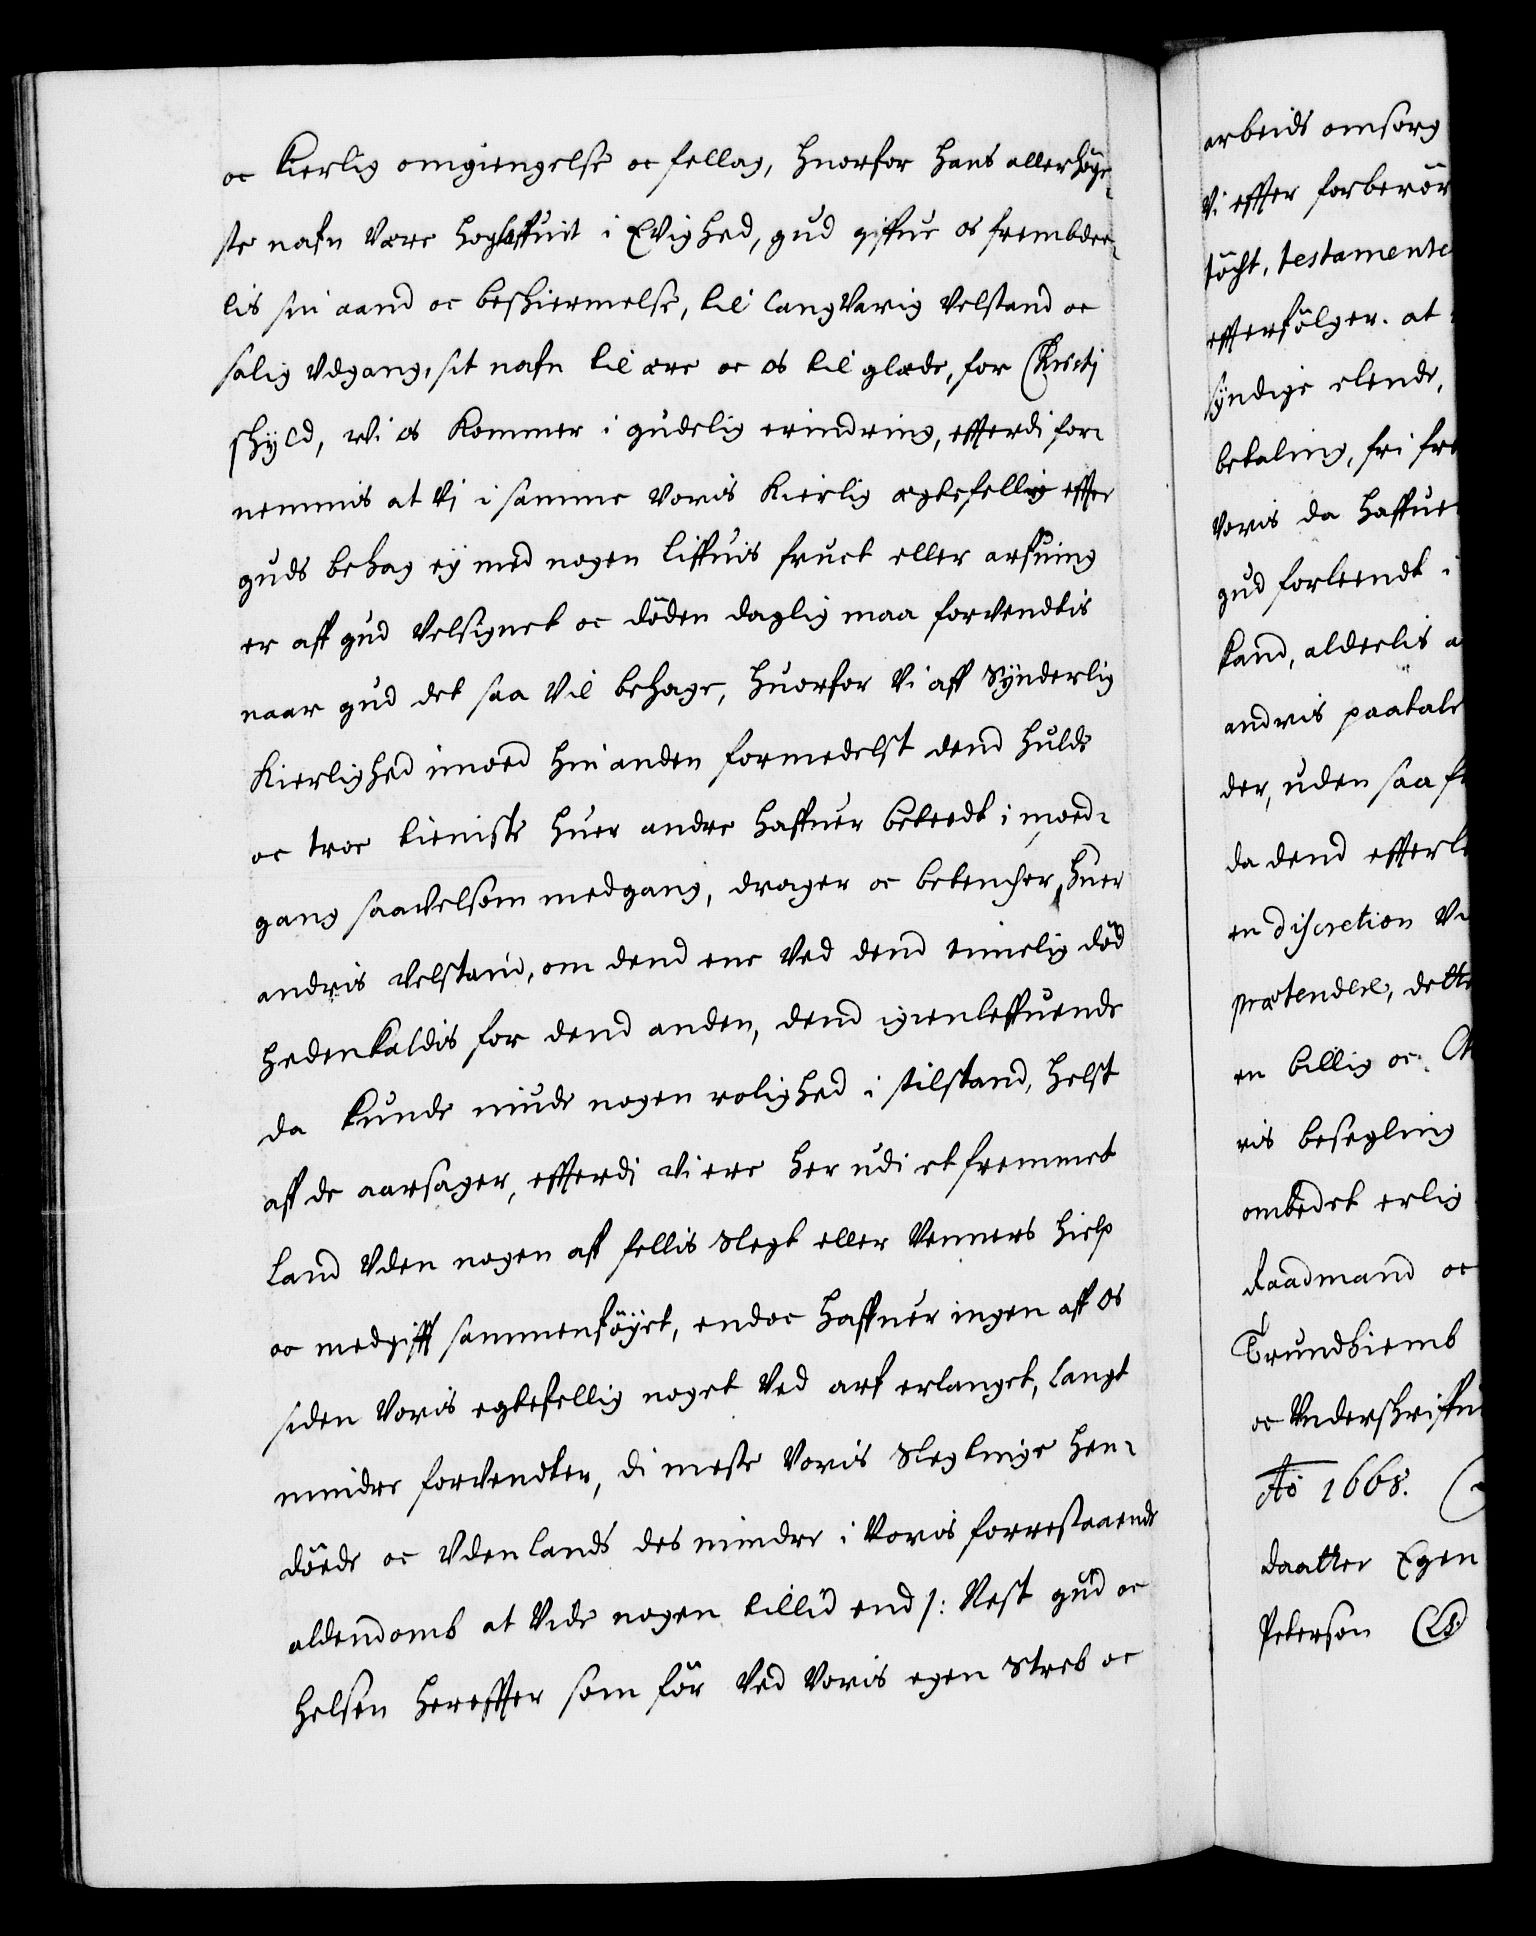 oc Kierlig omgiengelse oc fellag, huorfor hans allerhöye-
ste nafn være høyloffuit i Evighed, gud giffue os frembdee-
lis sin aand oc beskiermelse, til langvarig velstand oc
salig vdgang, sit nafn til ære oc os til glæde, for Christj
skyld, wi os kommer i gudelig erindring, efferdi for-
nemmis at vj i samme voris kierlig ægtefellig effter
guds behag eÿ med nogen liffuis fruct eller arfuing
er aff gud velsignet oc döden daglig maa forvendtis
naar gud det saa vil behage, huorfor vi aff synderlig
kierlighed imoed hin anden formedelst dend hulde
oc troe tieniste huer andre haffuer beteedt i moed-
gang saavelsom medgang, drager oc betencher huer
andris velstand, om dend ene ved dend timelig död
hedenkaldis for dend anden, dend igienleffuende
da kunde niude nogen rolighed i stilstand, helst
aff de aarsager, efferdi vi ere her udi et fremmet
land vden nogen aff fellis slegt eller venners hielp
oc medgifft sammenföÿet, endoc haffuer ingen aff os
siden voris egtefellig noget ved arf erlanget, langt
mindre forvendter, di meste voris slegtninge hen-
döede oc vdenlands des mindre i voris forrestaaende
aldendomb at vide nogen tillid end /: Nest gud oc
helsen hereffter som för ved voris egen streb oc
arbeids omsorg
vi effter forberör
töcht, testamente
effterfölger. at
syndige elende,
betaling, fri fra
voris da haffue
gud forleendt i
kand, alderlis a
andris paatale
der, uden saa
da dend effterl
en discretion v
prætendere, dette
en billig oc
ris besegling
ombedet erlig
Raadmand oc
Trundhiemb
oc vnderskriffu
Ao 1668.
daatter Egen
Peterson (LS.